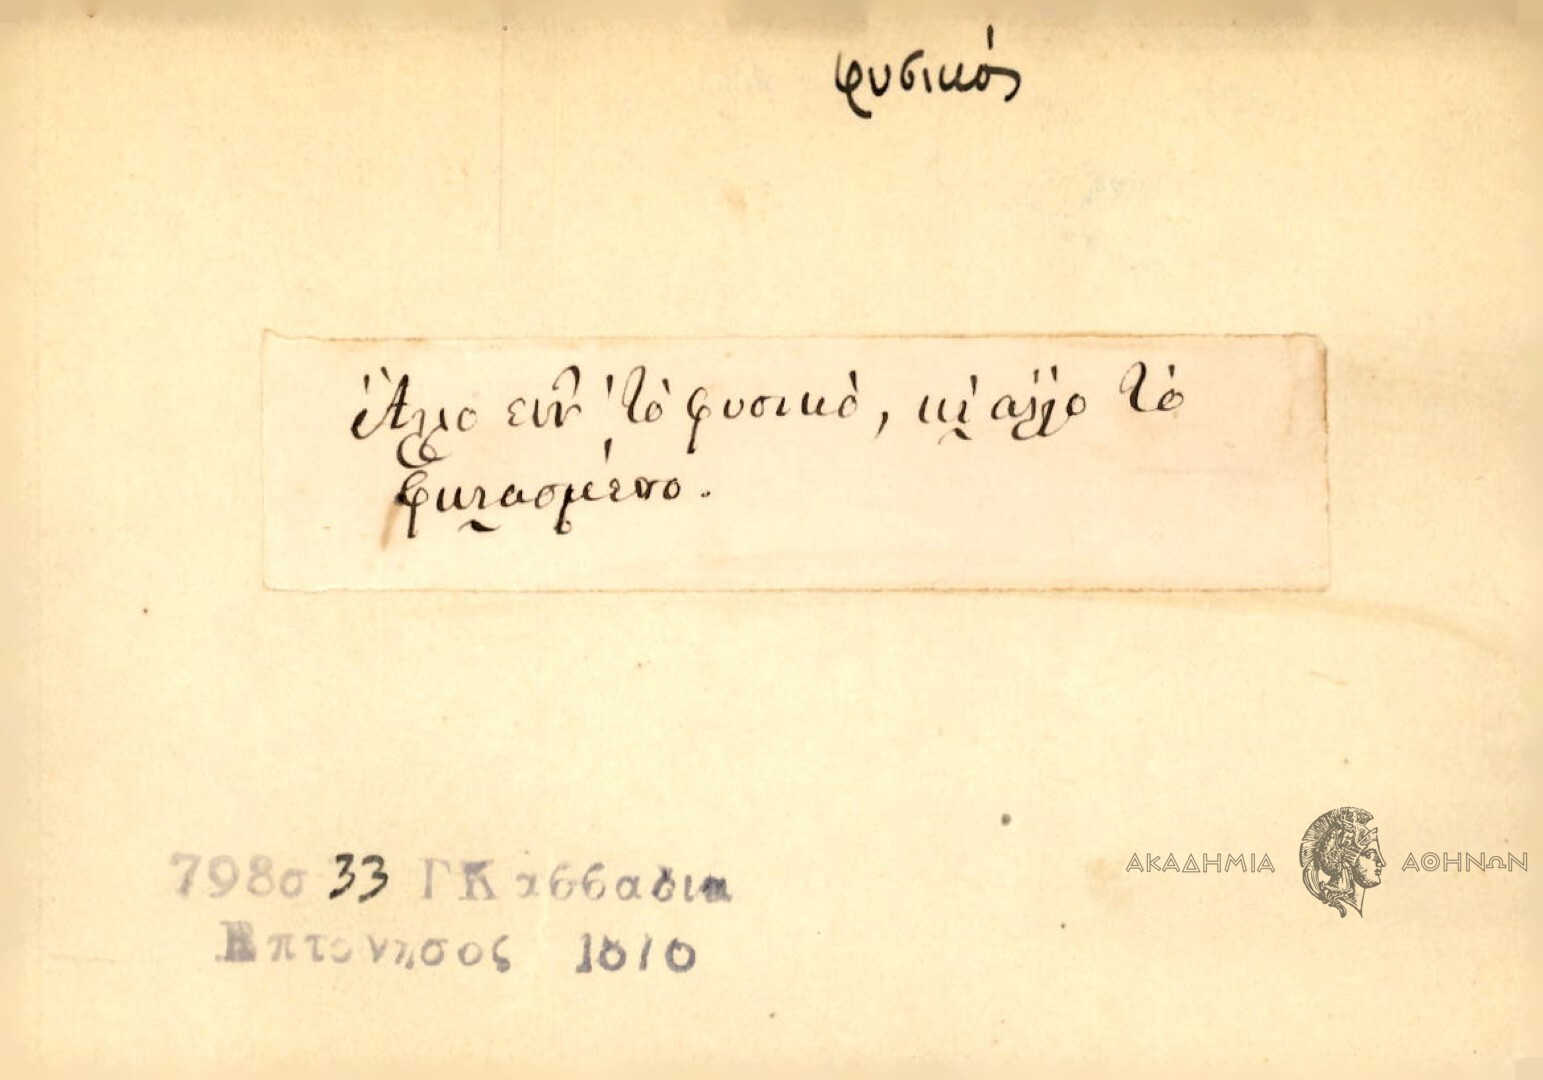 φυσικός
Ἄλλο εἶν' τὸ φυσικὸ, κι̰ ἄλλο τὸ
φκι̰ασμένο.
798σ 33 Γ Κασσαδια
Επτανησος 1876
ΑΚΑΔΗΜΙΑ ΑΘΗΝΩΝ